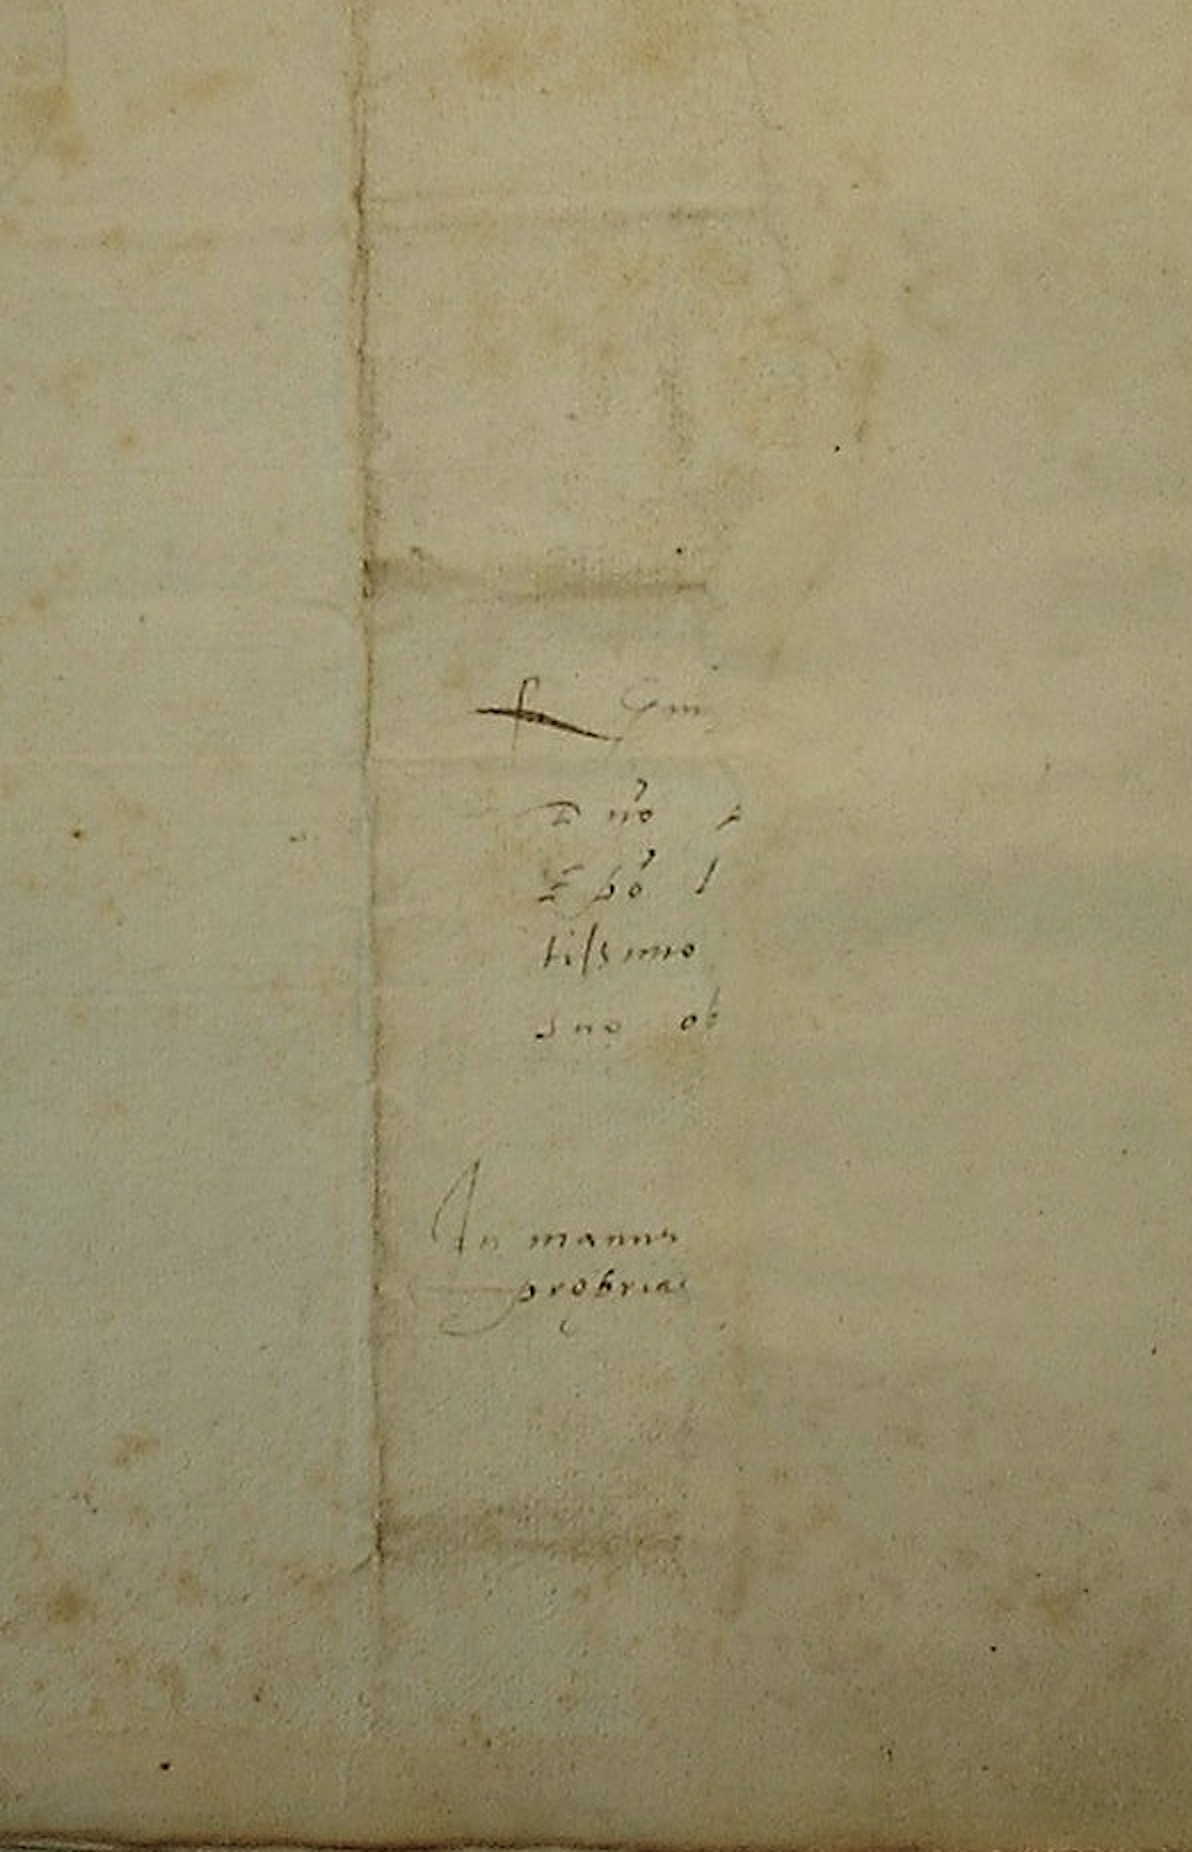 Dno
Epo
tissimo
suo ob
In manus
proprias